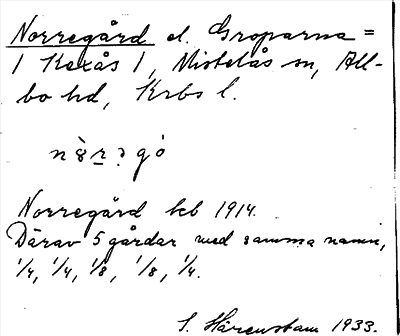 Norregård el. Groparna =
1 Kexås 1, Mistelås sn, All-
bo hd, Krbs l.
Norregård kb 1914.
Därav 5 gårdar med samma namn,
1/4, 1/4, 1/8, 1/8, 1/4.
S. Härenstam 1933.